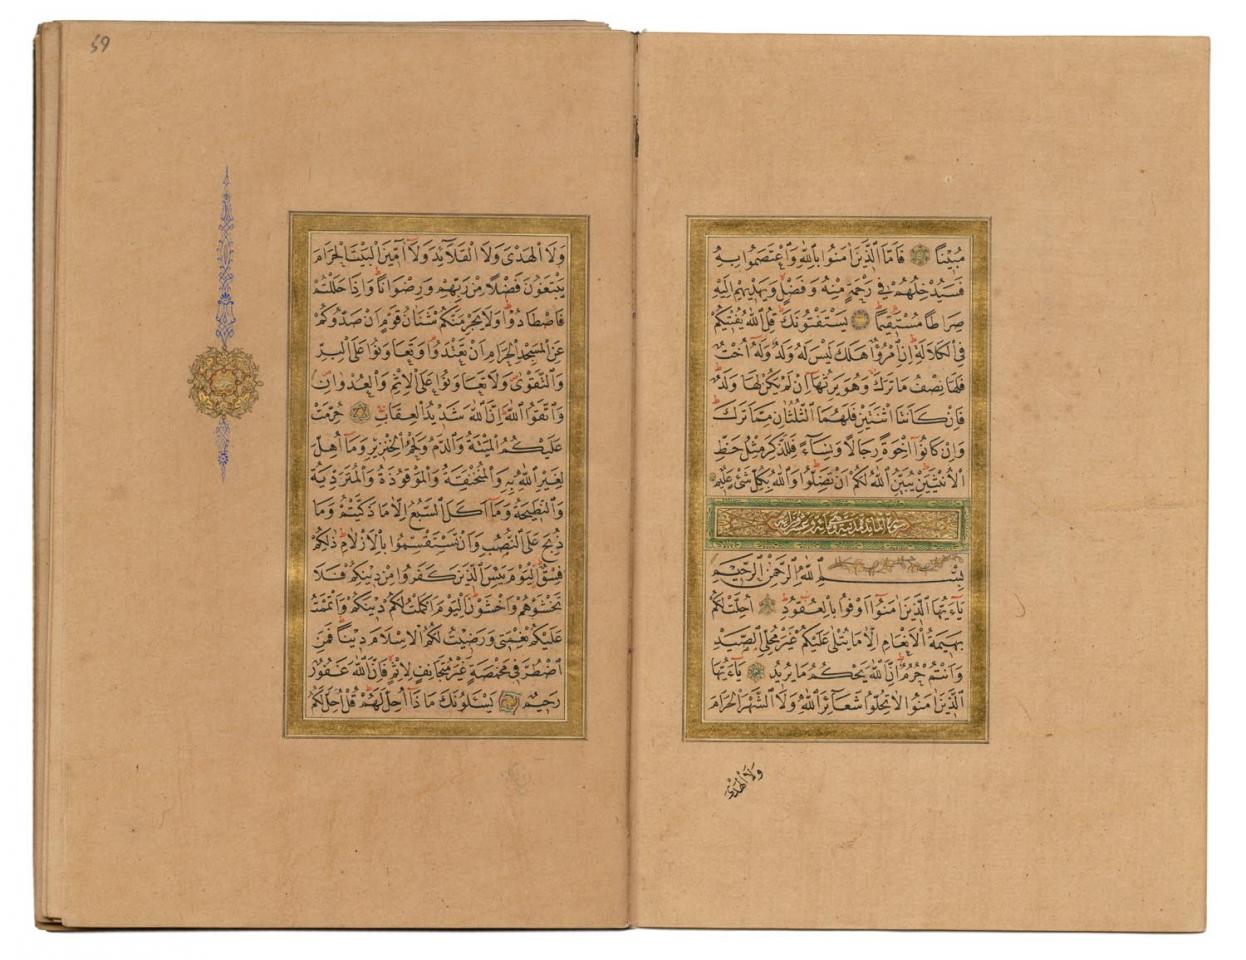 مُبِينًا فَاَمَّا الَّذِينَ اٰمَنُوا بِاللّٰهِ وَاعْتَصَمُوا بِهِ
فَسَيُدْخِلُهُمْ فِي رَحْمَةٍ مِنْهُ وَفَضْلٍ وَيَهْدِيهِمْ اِلَيْهِ
صِرَاطًا مُسْتَقِيمًا يَسْتَفْتُونَكَ قُلِ اللّٰهُ يُفْتِيكُمْ
فِي الْكَلَالَةِ اِنِ امْرُؤٌا هَلَكَ لَيْسَ لَهُ وَلَدٌ وَلَهُ اُخْتٌ
فَلَهَا نِصْفُ مَا تَرَكَ وَهُوَ يَرِثُهَا اِنْ لَمْ يَكُنْ لَهَا وَلَدٌ
فَاِنْ كَانَتَا اثْنَتَيْنِ فَلَهُمَا الثُّلُثَانِ مِمَّا تَرَكَ
وَاِنْ كَانُوا اِخْوَةً رِجَالًا وَنِسَاءً فَلِلذَّكَرِ مِثْلُ حَظِّ
الْاُنْثَيَيْنِ يُبَيِّنُ اللّٰهُ لَكُمْ اَنْ تَضِلُّوا وَاللّٰهُ بِكُلِّ شَيْءٍ عَلِيمٌ
سورة المائدة مدنية وهى مائة وعشرون اية
بِسْمِ اللّٰهِ الرَّحْمٰنِ الرَّحِيمِ
يَاءَيُّهَا الَّذِينَ اٰمَنُوا اَوْفُوا بِالْعُقُودِ اُحِلَّتْ لَكُمْ
بَهِيمَةُ الْاَنْعَامِ اِلَّا مَا يُتْلٰى عَلَيْكُمْ غَيْرَ مُحِلِّي الصَّيْدِ
وَاَنْتُمْ حُرُمٌ اِنَّ اللّٰهَ يَحْكُمُ مَا يُرِيدُ يَاءَيُّهَا
الَّذِينَ اٰمَنُوا لَا تُحِلُّوا شَعَائِرَ اللّٰهِ وَلَا الشَّهْرَ الْحَرَامَ
وَلَا الْهَدْىَ
59
وَلَا الْهَدْىَ وَلَا الْقَلَائِدَ وَلَا اٰمِّينَ الْبَيْتَ الْحَرَامَ
يَبْتَغُونَ فَضْلًا مِنْ رَبِّهِمْ وَرِضْوَانًا وَاِذَا حَلَلْتُمْ
فَاصْطَادُوا وَلَا يَجْرِمَنَّكُمْ شَنَاٰنُ قَوْمٍ اَنْ صَدُّوكُمْ
عَنِ الْمَسْجِدِ الْحَرَامِ اَنْ تَعْتَدُوا وَتَعَاوَنُوا عَلَى الْبِرِّ
وَالتَّقْوٰى وَلَا تَعَاوَنُوا عَلَى الْاِثْمِ وَالْعُدْوَانِ
وَاتَّقُوا اللّٰهَ اِنَّ اللّٰهَ شَدِيدُ الْعِقَابِ حُرِّمَتْ
عَلَيْكُمُ الْمَيْتَةُ وَالدَّمُ وَلَحْمُ الْخِنْزِيرِ وَمَا اُهِلَّ
لِغَيْرِ اللّٰهِ بِهِ وَالْمُنْخَنِقَةُ وَالْمَوْقُوذَةُ وَالْمُتَرَدِّيَةُ
وَالنَّطِيحَةُ وَمَا اَكَلَ السَّبُعُ اِلَّا مَا ذَكَّيْتُمْ وَمَا
ذُبِحَ عَلَى النُّصُبِ وَاَنْ تَسْتَقْسِمُوا بِالْاَزْلَامِ ذٰلِكُمْ
فِسْقٌ اَلْيَوْمَ يَئِسَ الَّذِينَ كَفَرُوا مِنْ دِينِكُمْ فَلَا
تَخْشَوْهُمْ وَاخْشَوْنِ اَلْيَوْمَ اَكْمَلْتُ لَكُمْ دِينَكُمْ وَاَتْمَمْتُ
عَلَيْكُمْ نِعْمَتِي وَرَضِيتُ لَكُمُ الْاِسْلَامَ دِينًا فَمَنِ
اضْطُرَّ فِي مَخْمَصَةٍ غَيْرَ مُتَجَانِفٍ لِاِثْمٍ فَاِنَّ اللّٰهَ غَفُورٌ
رَحِيمٌ يَسْئَلُونَكَ مَاذَا اُحِلَّ لَهُمْ قُلْ اُحِلَّ لَكُمُ